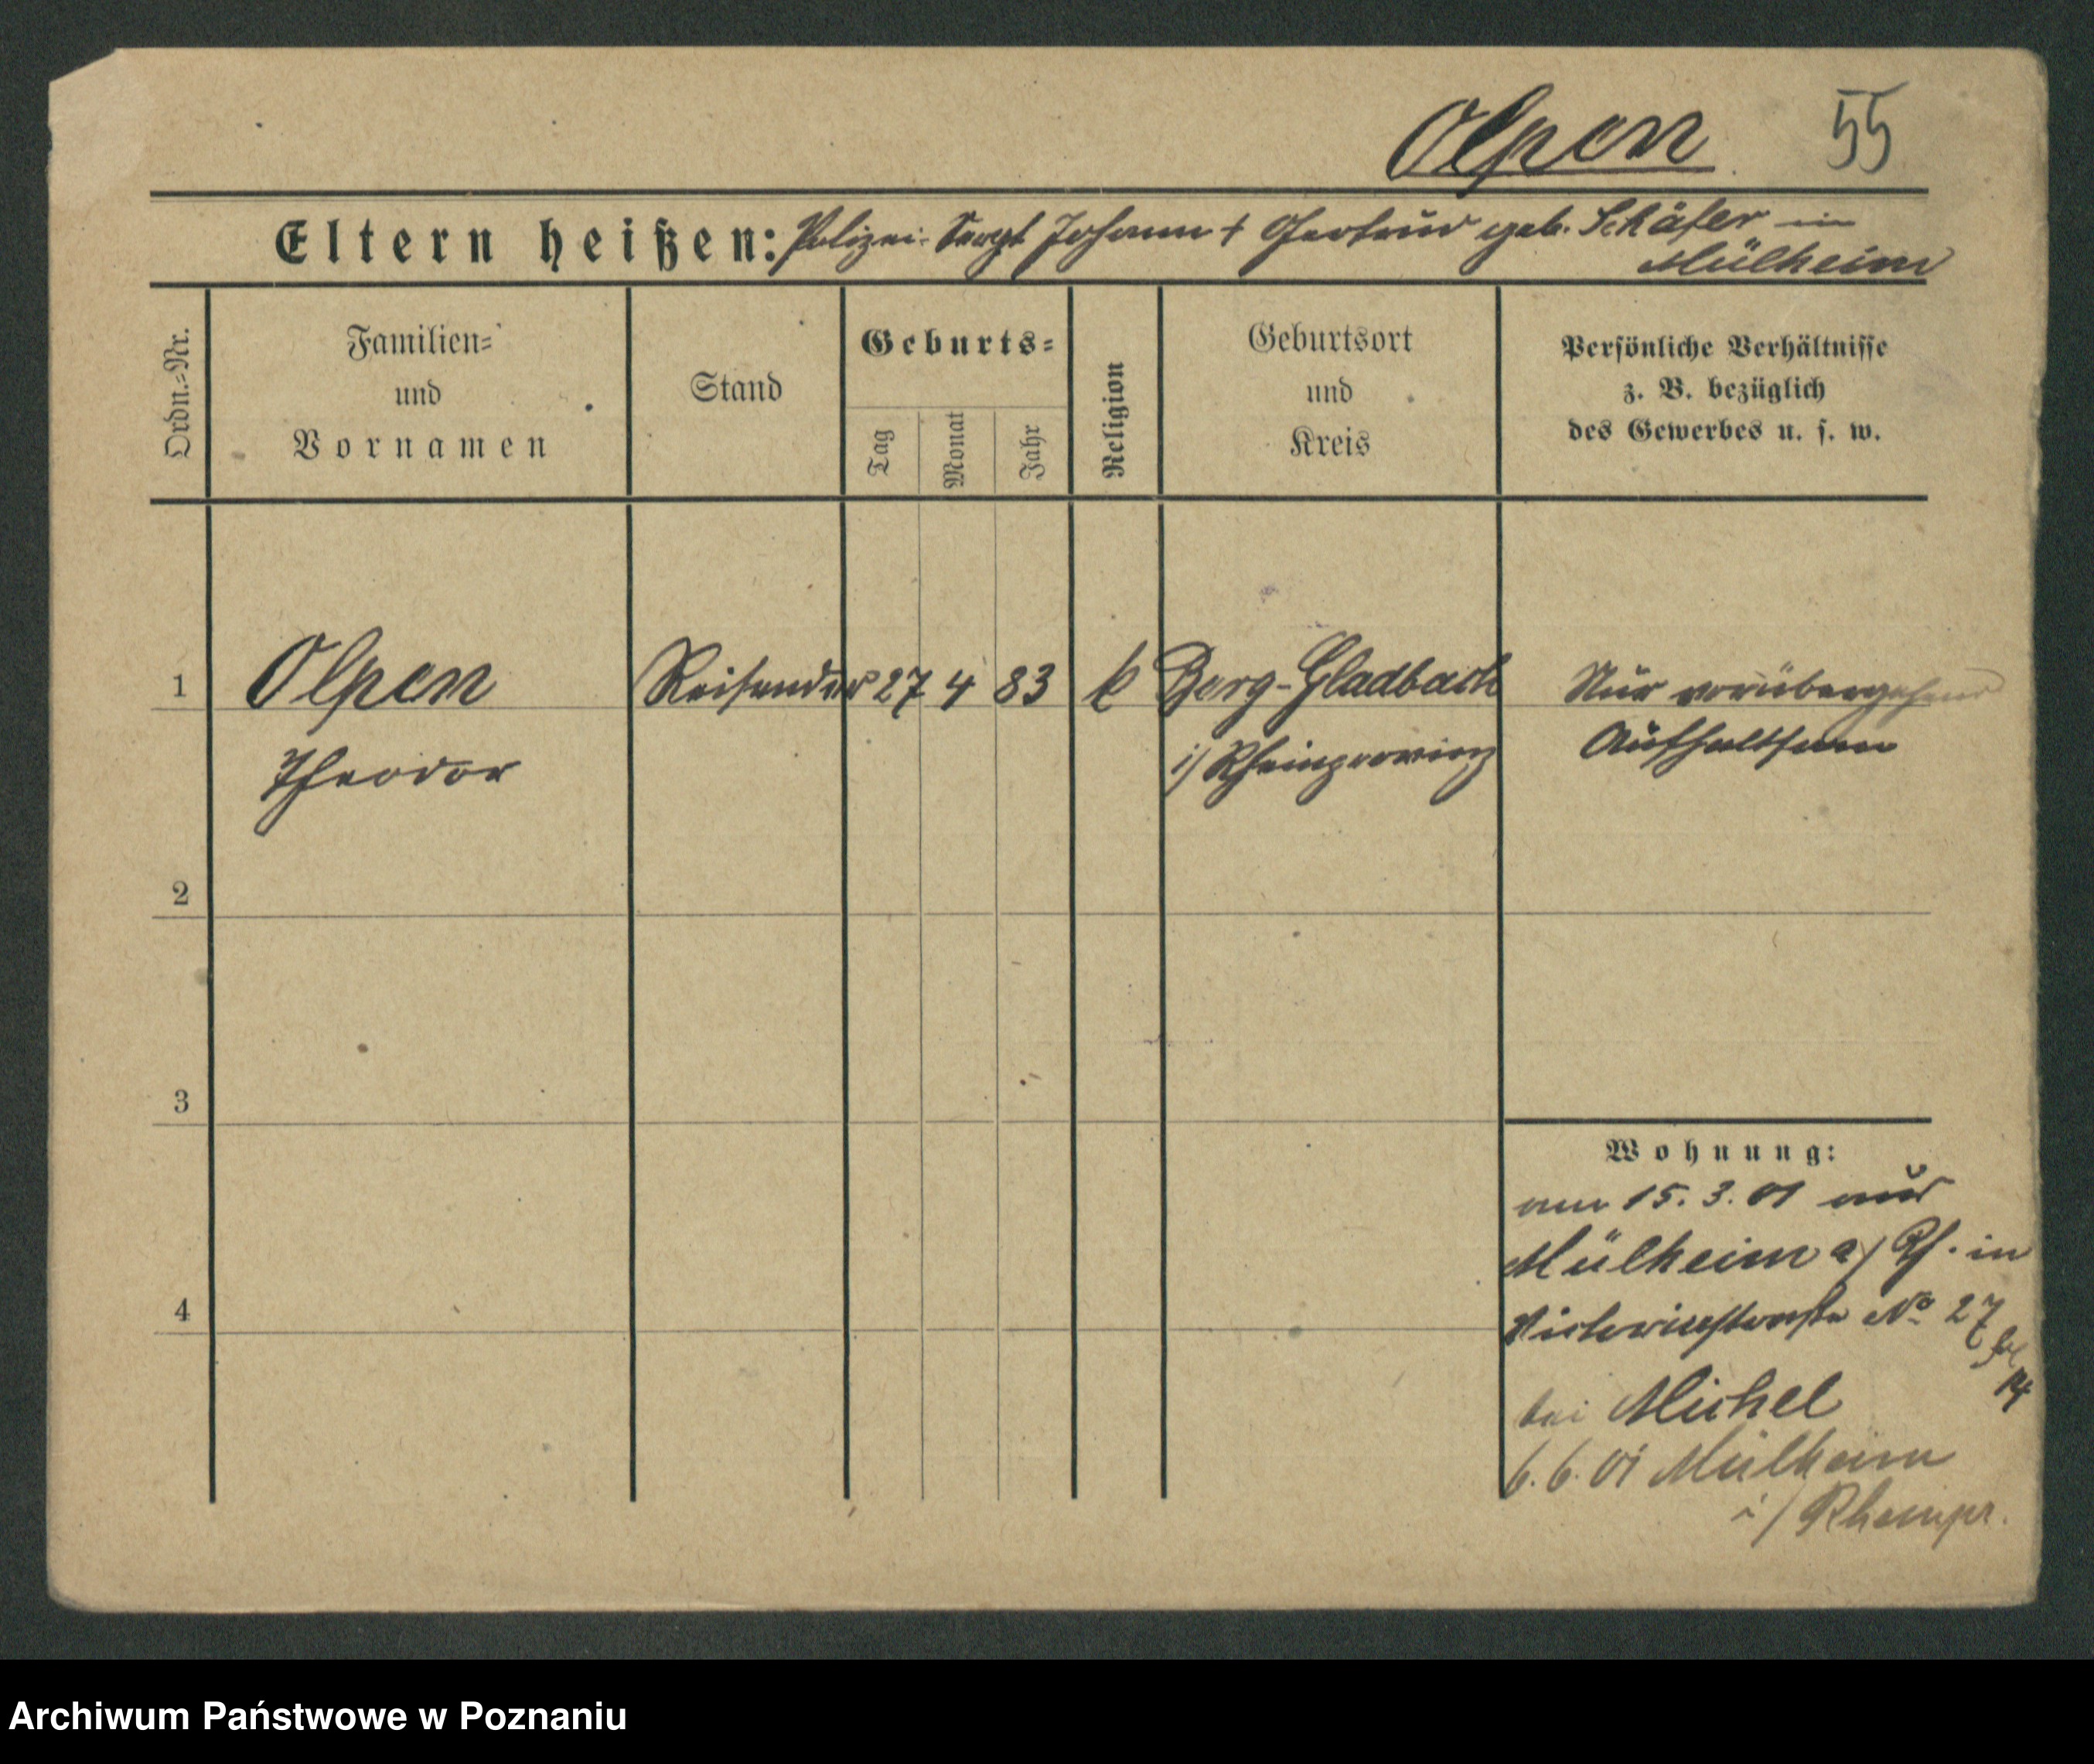 Olpen 55
Eltern heißen: Polizei-Sergt Johann + Gertrud geb. Schäfer in
Mülheim
Ordn.-Nr.
Familien-
und
Vornamen
Stand
Geburts-
Tag
Monat
Jahr
Religion
Geburtsort
und
Kreis
Persönliche Verhältnisse
z. B. bezüglich
des Gewerbes u. s. w.
1 Olpen Reisender 27 4 83 k Berg-Gladbach Nur vorübergehend
Theodor i/ Rheinprovinz Aufhaltsam
2
3
Wohnung:
am 15. 3. 01 aus
Mülheim a/ Rh. in
4
Victoriastraße No 27
14
bei Michel
6. 6. 01 Mülheim
i/ Rheinpr.
Archiwum Państwowe w Poznaniu